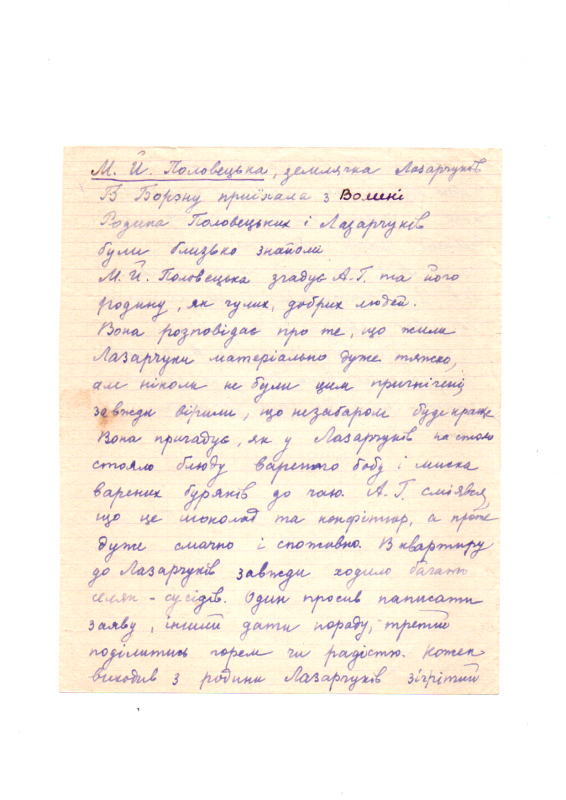 М. Й. Половецька, землячка Лазарчуків
В Борзну приїхала з Волині
Родина Половецьких і Лазарчуків
були близько знайомі
М. Й. Половецька згадує А. Г. та його
родину, як чулих, добрих людей.
Вона розповідає про те, що жили
Лазарчуки матеріально дуже тяжко,
але ніколи не були цим пригнічені,
завжди вірили, що незабаром буде краще
Вона пригадує, як у Лазарчуків на столі
стояло блюдо вареного бобу і миска
варених буряків до чаю. А. Г. сміявся,
що це шоколад та конфітюр, а проте
дуже смачно і споживно. В квартиру
до Лазарчуків завжди ходило багато
селян - сусідів. Один просив написати
заяву, інший дати пораду, третій
поділитись горем чи радістю. Кожен
виходив з родини Лазарчуків зігрітий